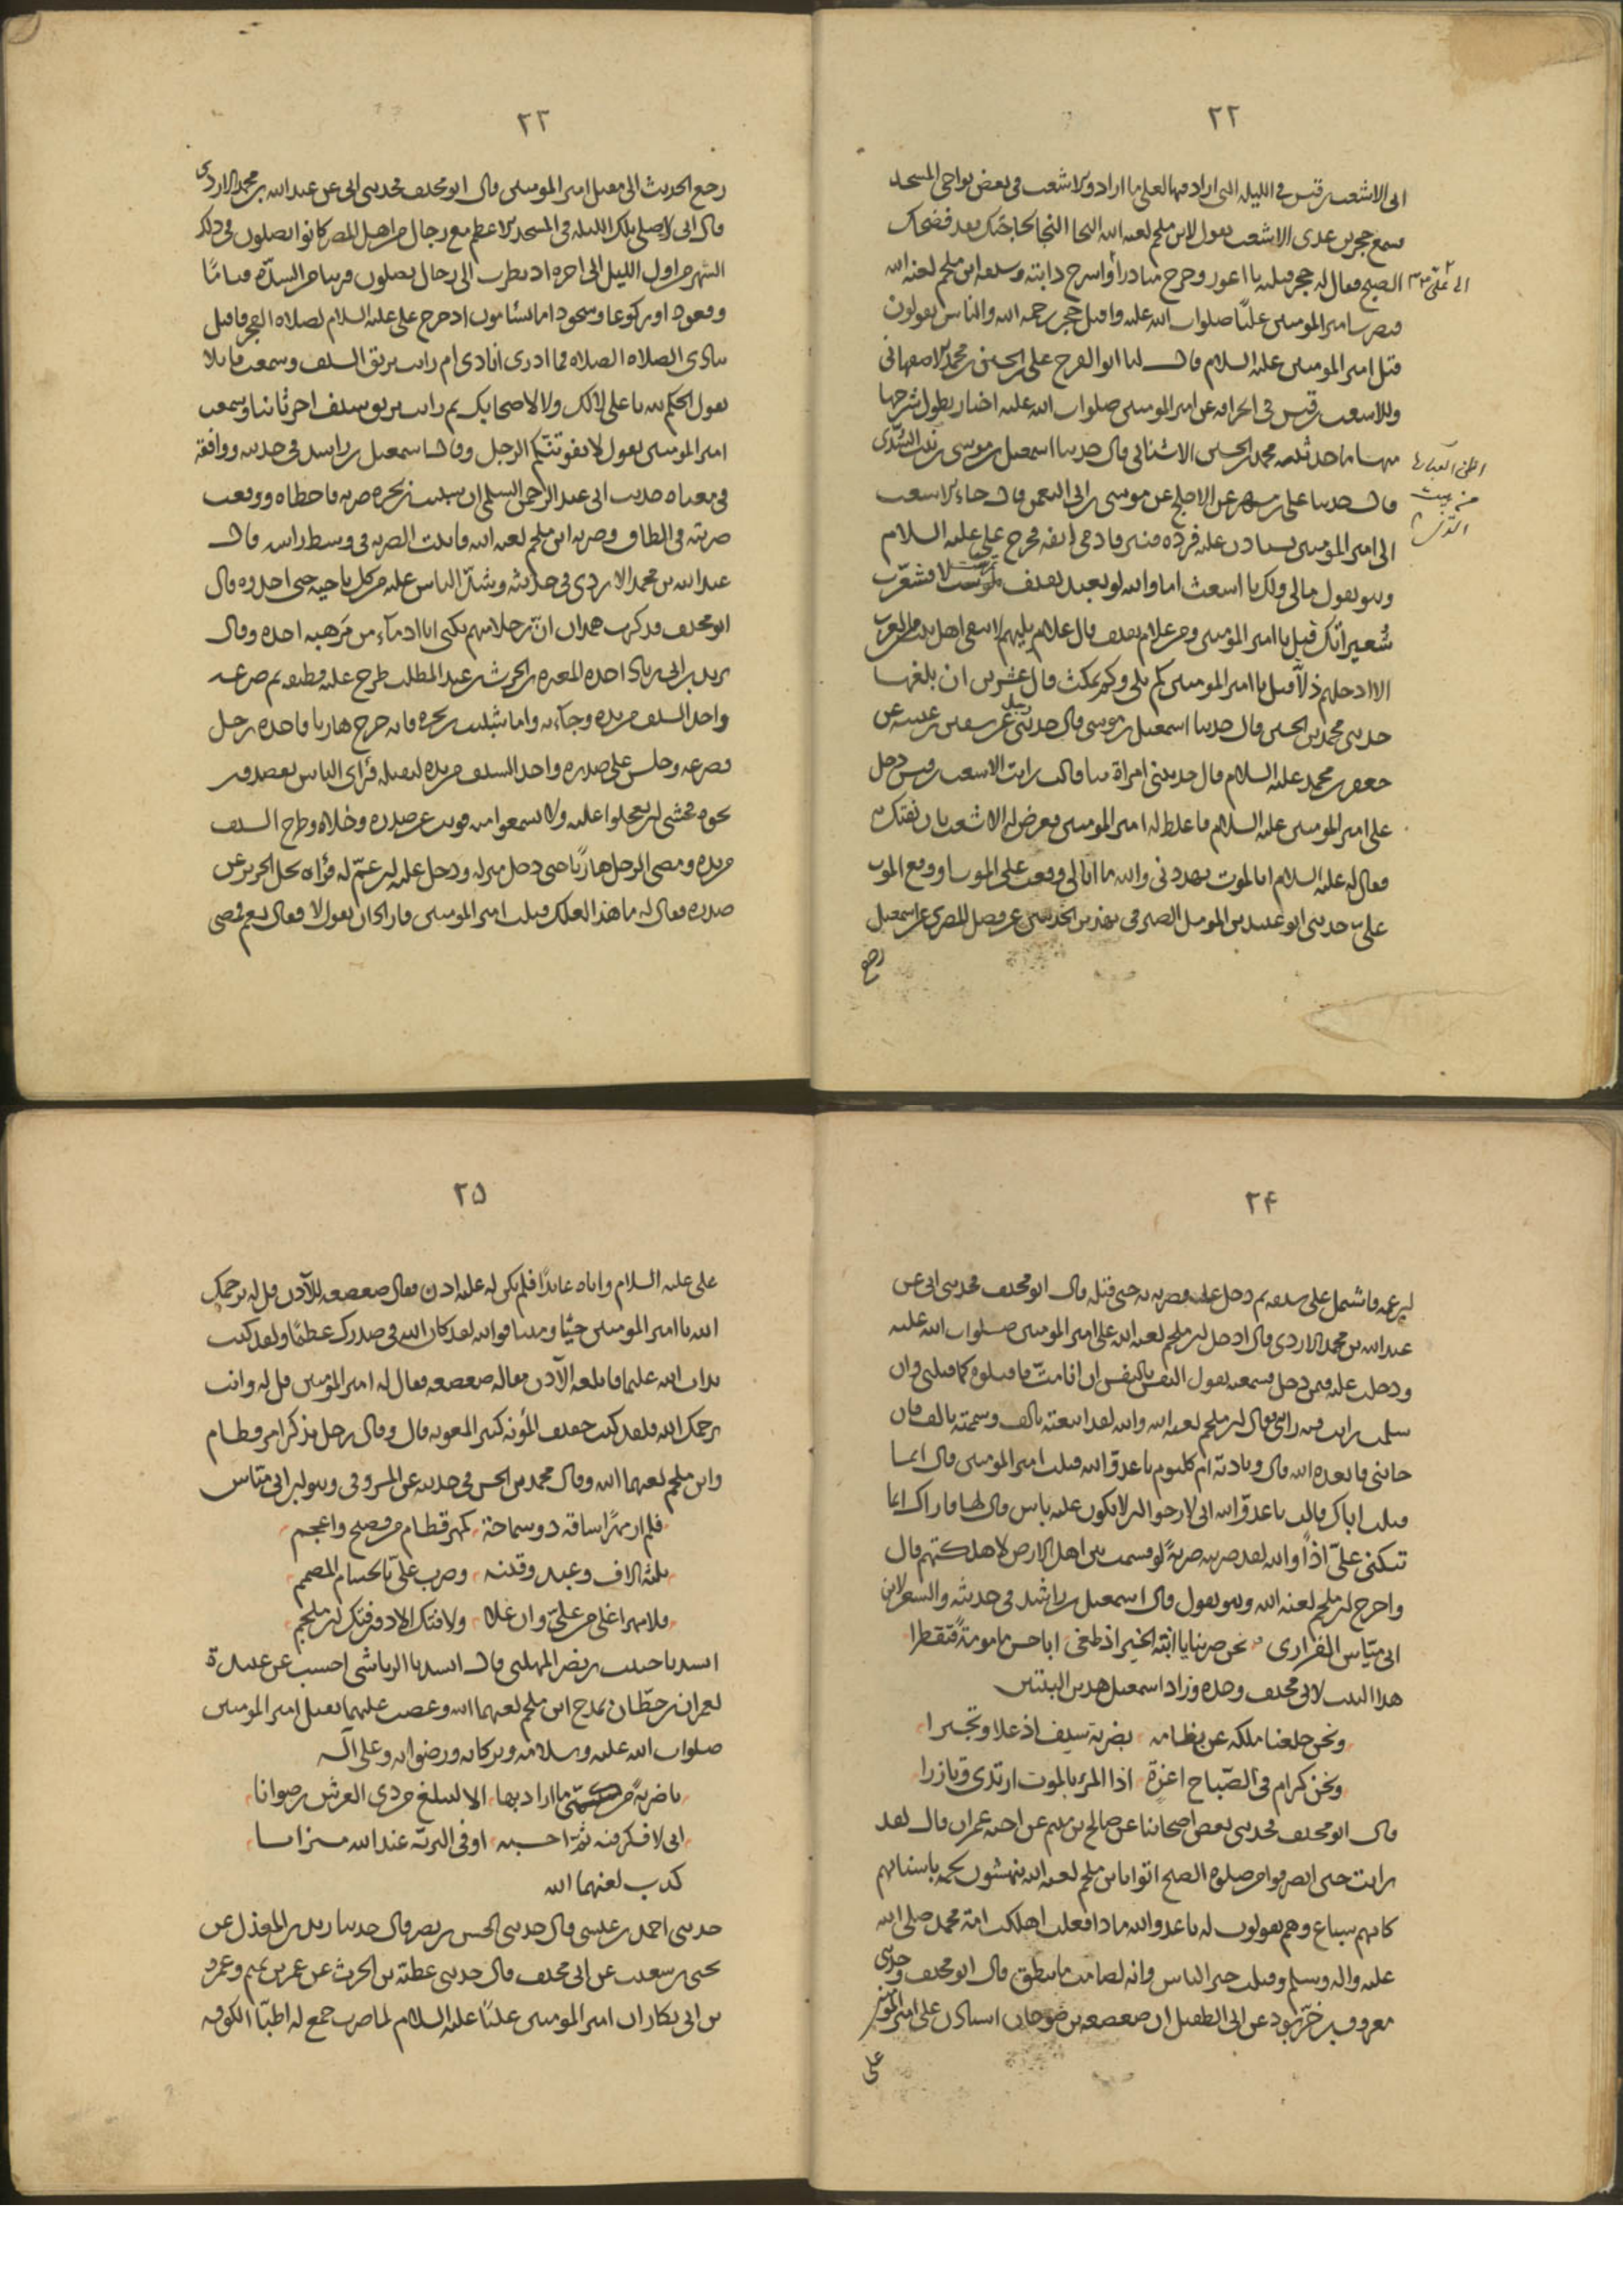 ٢٢
الى الاشعث بن قيس في الليلة التي اراد فيها بعلي ما اراد والاشعث في بعض نواحي المسجد
فسمع حجر بن عدى الاشعث يقول لابن ملجم لعنه الله النجا النجا لحاجتك فقد فضحك
الصبح فقال له حجر قتلته يا اعور وخرج مبادرا واسرج دابته وسبقه ابن ملجم لعنه الله
الى على
فضرب امير المومنين عليًا صلوات الله عليه واقبل حجر رحمه الله والناس يقولون
قتل امير المومنين عليه السلام قال لنا ابو الفرج على بن الحسين بن محمد الاصفهانى
وللاشعث بن قيس في انحرافه عن امير المومنين صلوات الله عليه اخبار يطول شرحها
منها ما حدثنيه محمد بن الحسين الاشنانى قال حدثنا اسمعيل بن موسى بن بنت السُّدّى
قال حدثنا على بن مسهر عن الاجلح عن موسى بن ابى النعمن قال جاء الاشعث
الى امير المومنين يستاذن عليه فرده قنبر فادمى انفه فخرج على عليه السلام
وهو يقول مالى ولك يا اشعث اما والله لو بعبد ثقيف تمرست لاقشعرّت
شُعيراتك قيل يا امير المؤمنين ومن غلام ثقيف قال غلام يليهم لا يبقى اهل بيت من العرب
الا ادخلهم ذلا قيل يا امير المومنين كم يلى وكم يمكث قال عشرين ان بلغها
حدثنى محمد بن الحسين قال حدثنا اسمعيل بن موسى قال حدثنى رجل عن سفين بن عيينه عن
جعفر بن محمد عليه السلام قال حدثتنى امراة منا قالت رايت الاشعث بن قيس دخل
على امير المومنين عليه السلام فاغلظ له امير المومنين فعرض له الاشعث بان يفتك به
فقال له عليه السلام ابالموت تهددنى والله ما ابالى وقعت على الموت او وقع الموت
علىّ حدثنى ابو عبيد بن المومل الصيرفى بهذين الحديثين عن فضل المصرى عن اسمعيل
رجع
٢٣
رجع الحديث الى مقتل امير المومنين قال ابو مخنف فحدثنى ابى عن عبد الله بن محمد الازدى
قال انى لاصلى تلك الليله في المسجد الاعظم مع رجال من اهل المصر كانوا يصلون في ذلك
الشهر من اول الليل الى اخره اذ نظرت الى رجال يصلون قريبا من السدّة قيامًا
وقعودا وركوعا وسجودا ما يسأمون اذ خرج على عليه السلام لصلاه الفجر فاقبل
ينادى الصلاه الصلاه فما ادرى انادى ام رايت بريق السيف وسمعت قايلا
يقول الحكم لله يا على لا لك ولا لاصحابك ثم رايت بريق سيف اخر ثانيا وسمعت
امير المومنين يقول لا يفوتنّكم الرجل وقال اسمعيل بن راشد في حديثه ووافقه
في معناه حديث ابى عبد الرحمن السلمى ان شبيب بن بجره ضربه فاخطاه ووقعت
ضربته في الطاق وضربه ابن ملجم لعنه الله فاثبت الضربه في وسط راسه قال
عبد الله بن محمد الازدى في حديثه وشدّ الناس عليه من كل ناحيه حتى اخذوه قال
ابو مخنف فذكرت همدان انّ رجلا منهم يكنى ابا ادماء من مرهبه اخذه وقال
يزيد بن ابى زياد اخذه المغيره بن الحرث بن عبد المطلب طرح عليه قطيفه ثم صرعه
واخذ السيف من يده وجآء به واما شبيب بن بجره فانه خرج هاربا فاخذه رجل
فصرعه وجلس على صدره واخذ السيف من يده ليقتله فرأى الناس يقصدون
نحوه فخشى ان يعجلوا عليه ولا يسمعوا منه فوثب عن صدره وخلاه وطرح السيف
من يده ومضى الرجل هاربًا حتى دخل منزله ودخل عليه ابن عمّ له فرأه يحل الحرير عن
صدره فقال له ما هذا لعلك قتلت امير المومنين فاراد ان يقول لا فقال نعم فمضى
٢۴
ابن عمه فاشتمل على سيفه ثم دخل عليه فضربه به حتى قتله قال ابو مخنف فحدثنى ابى عن
عبد الله بن محمد الازدى قال ادخل ابن ملجم لعنه الله على امير المومنين صلوات الله عليه
ودخلت عليه فيمن دخل فسمعته يقول النفس بالنفس ان انا مت فاقتلوه كما قتلنى وان
سلمت رايت فيه رايى فقال ابن ملجم لعنه الله والله لقد ابتعته بالف وسممته بالف فان
خاننى فابعده الله قال ونادته ام كلثوم يا عدو الله قتلت امير المومنين قال انما
قتلت اباك قالت يا عدو الله انى لارجو ان لا يكون عليه باس قال لها فاراك انما
تبكين علىّ اذًا والله لقد ضربته ضربةً لو قسمت بين اهل الارض لاهلكتهم قال
واخرج ابن ملجم لعنه الله وهو يقول قال اسمعيل بن راشد في حديثه والشعر لابن
ابى ميّاس الفزارى نحن ضربنا يا ابنة الخير اذ طغى ابا حسن مامومةً فتقطرا
هذا البيت لابى مخنف وحده وزاد اسمعيل هذين البيتين
ونحن خلعنا ملكه عن نظامه بضربة سيف اذ علا وتجبرا
ونحن كرام في الصّباح اعزة اذا المرء بالموت ارتدى وتازرا
قال ابو مخنف فحدثنى بعض اصحابنا عن صالح بن ميثم عن اخيه عمران قال لقد
رايت حين انصرفوا من صلوة الصبح اتوا بابن ملجم لعنه الله ينهشون لحمه باسنانهم
كانهم سباع وهم يقولون له يا عدو الله ماذا فعلت اهلكت امة محمد صلى الله
عليه واله وسلم وقتلت خير الناس وانه لصامت ما ينطق قال ابو مخنف وحدثنى
معروف بن خرّبوذ عن ابى الطفيل ان صعصعه بن صوحان استاذن على امير المؤمنين
على
٢۵
على عليه السلام واتاه عائدًا فلم يكن له عليه اذن فقال صعصعه للآذن قل له يرحمك
الله يا امير المومنين حيًا وميتا فوالله لقد كان الله في صدرك عظيمًا ولقد كنت
بذات الله عليما فابلغه الآذن مقاله صعصعه فقال له امير المؤمنين قل له وانت
يرحمك الله فلقد كنت خفيف المؤنه كثير المعونه قال وقال رجل يذكر امر قطام
وابن ملجم لعنهما الله وقال محمد بن الحسن في حديثه عن المسروقى وهو ابن ابى ميّاس
فلم ار مهرًا ساقه ذو سماحة كمهر قطام من فصيح واعجم
ثلثة الاف وعبد وقينه وضرب علىّ بالحسام المصمم
فلا مهر اغلى من علىّ وان غلا ولا فتك الا دون فتك ابن ملجم
انشدنا حبيب بن نصر المهلبى قال انشدنا الرياشى احسب عن ابى عبيدة
لعمران بن حطّان يمدح ابن ملجم لعنهما الله وغضب عليهما بقتل امير المومنين
صلوات الله عليه وسلامه وبركاته ورضوانه وعلى آله
يا ضربةً من كمىّ ما اراد بها الا ليبلغ من ذى العرش رضوانا
انى لافكر فيه ثم احسبه اوفى البرية عند الله ميزانا
كذب لعنهما الله
حدثنى احمد بن عيسى قال حدثنى الحسن بن نصر قال حدثنا زيد بن المعذل عن
يحيى بن سعيد عن ابى مخنف قال حدثنى عطية بن الحرث عن عمر بن تميم وعمرو
بن ابى بكار ان امير المومنين عليًا عليه السلام لما ضرب جمع له اطبّا الكوفه